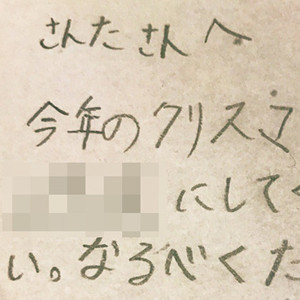 さんたさんへ
今年のクリスマ
にしてく
い。なるべくた